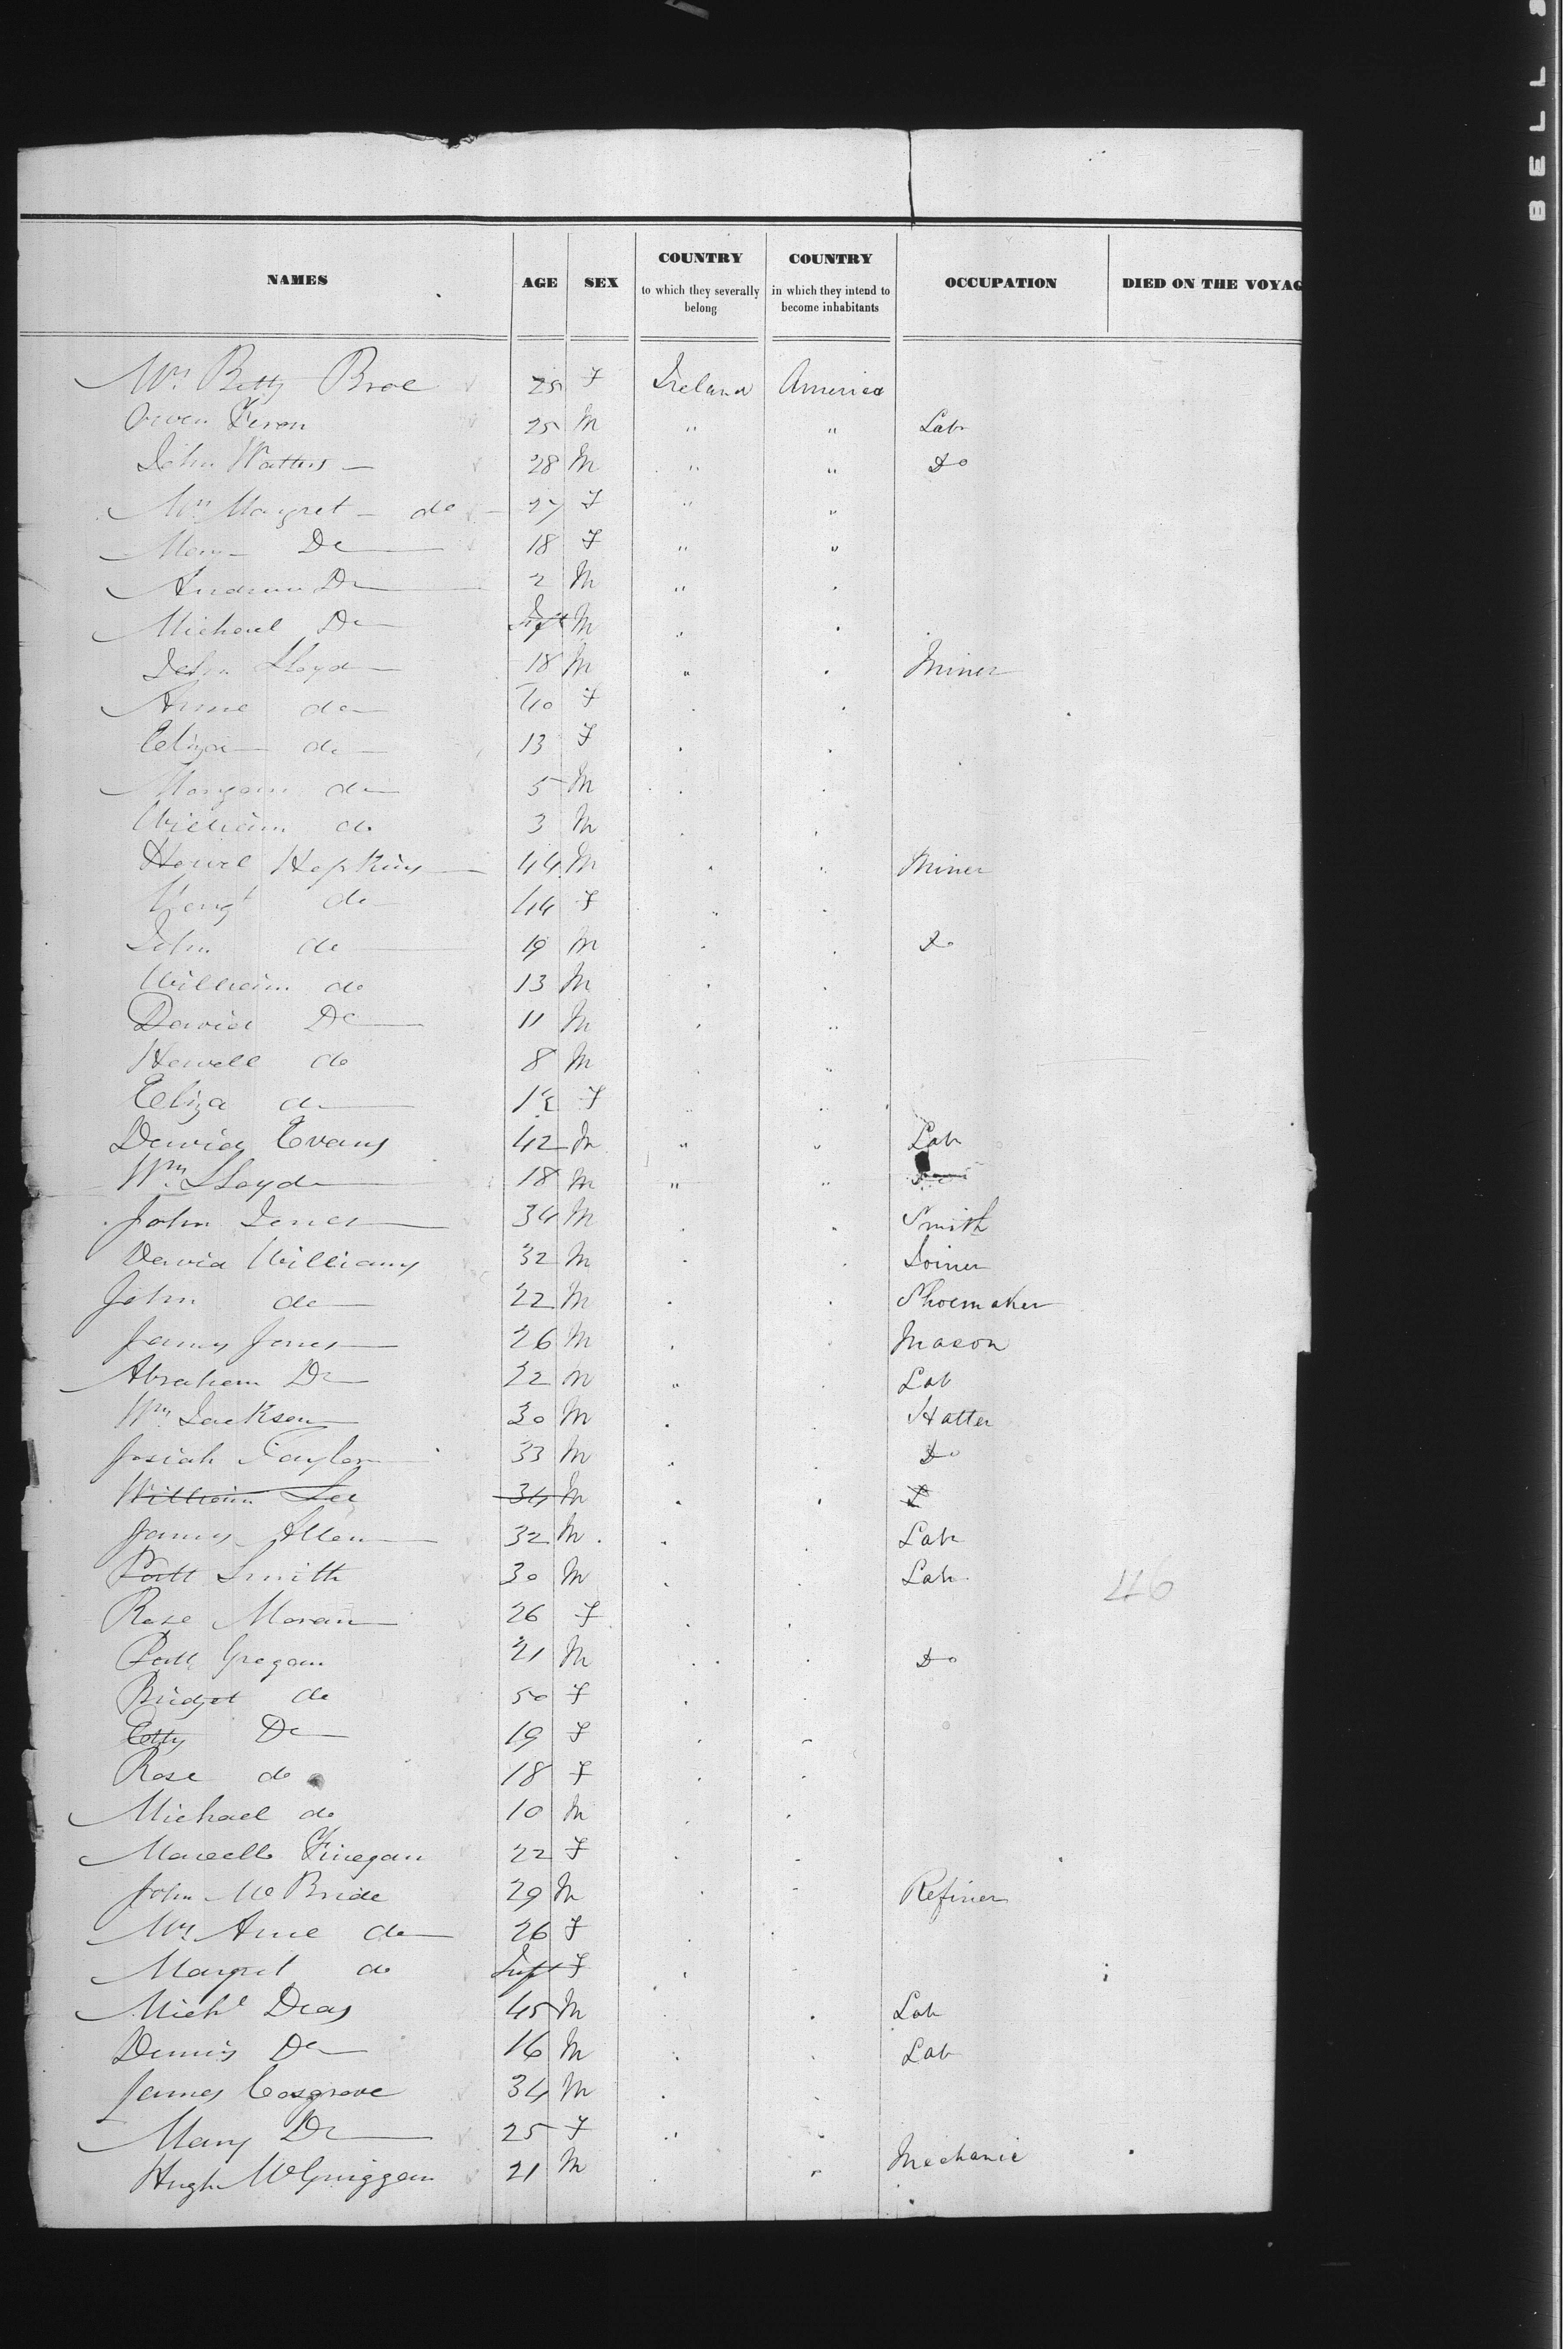 BELL &
NAMES AGE SEX COUNTRY to which they severally belong COUNTRY in which they intend to become inhabitants OCCUPATION DIED ON THE VOYAG
Mrs Betty Broe 25 F Ireland America
Owen Feron 25 M " " Lab
John Watters 28 M " " Do
Mrs Margret do 27 F " "
Mary Do 18 F " "
Andrew Do 2 M "
Michael Do Inft M "
John Lloyd 18 M " Miner
Anne do 40 F
Eliza do 13 F
Morgan do 5 M
William do 3 M
Howel Hopkins 44 M Miner
Margt do 44 F
John do 19 M Do
William do 13 M
David Do 11 M "
Howell do 8 M "
Eliza do F " "
David Evans 42 M " " Lab
Wm Lloyd 18 M " "
John Jones 34 M Smith
David Williams 32 M Joiner
John do 22 M Shoemaker
James Jones 26 M Mason
Abraham Do 22 M " Lab
Wm Jackson 30 M Hatter
Josiah Taylor 33 M Do
William Lee 34 M
James Allen 32 M Lab
Patt Smith 30 M Lab
46
Rose Moran 26 F
Patt Grogan 21 M Do
Bridget do 50 F
Do 19 F
Rose do 18 F
Michael do 10 M
Marcella Finegan 22 F
John McBride 29 M Refiner
Mrs Anne do 26 F
Margret do Inft F
Michl 45 M Lab
Dennis Do 16 M Lab
James Cosgrove 34 M
Mary Do 25 F "
Hugh McGuiggan 21 M " Mechanic